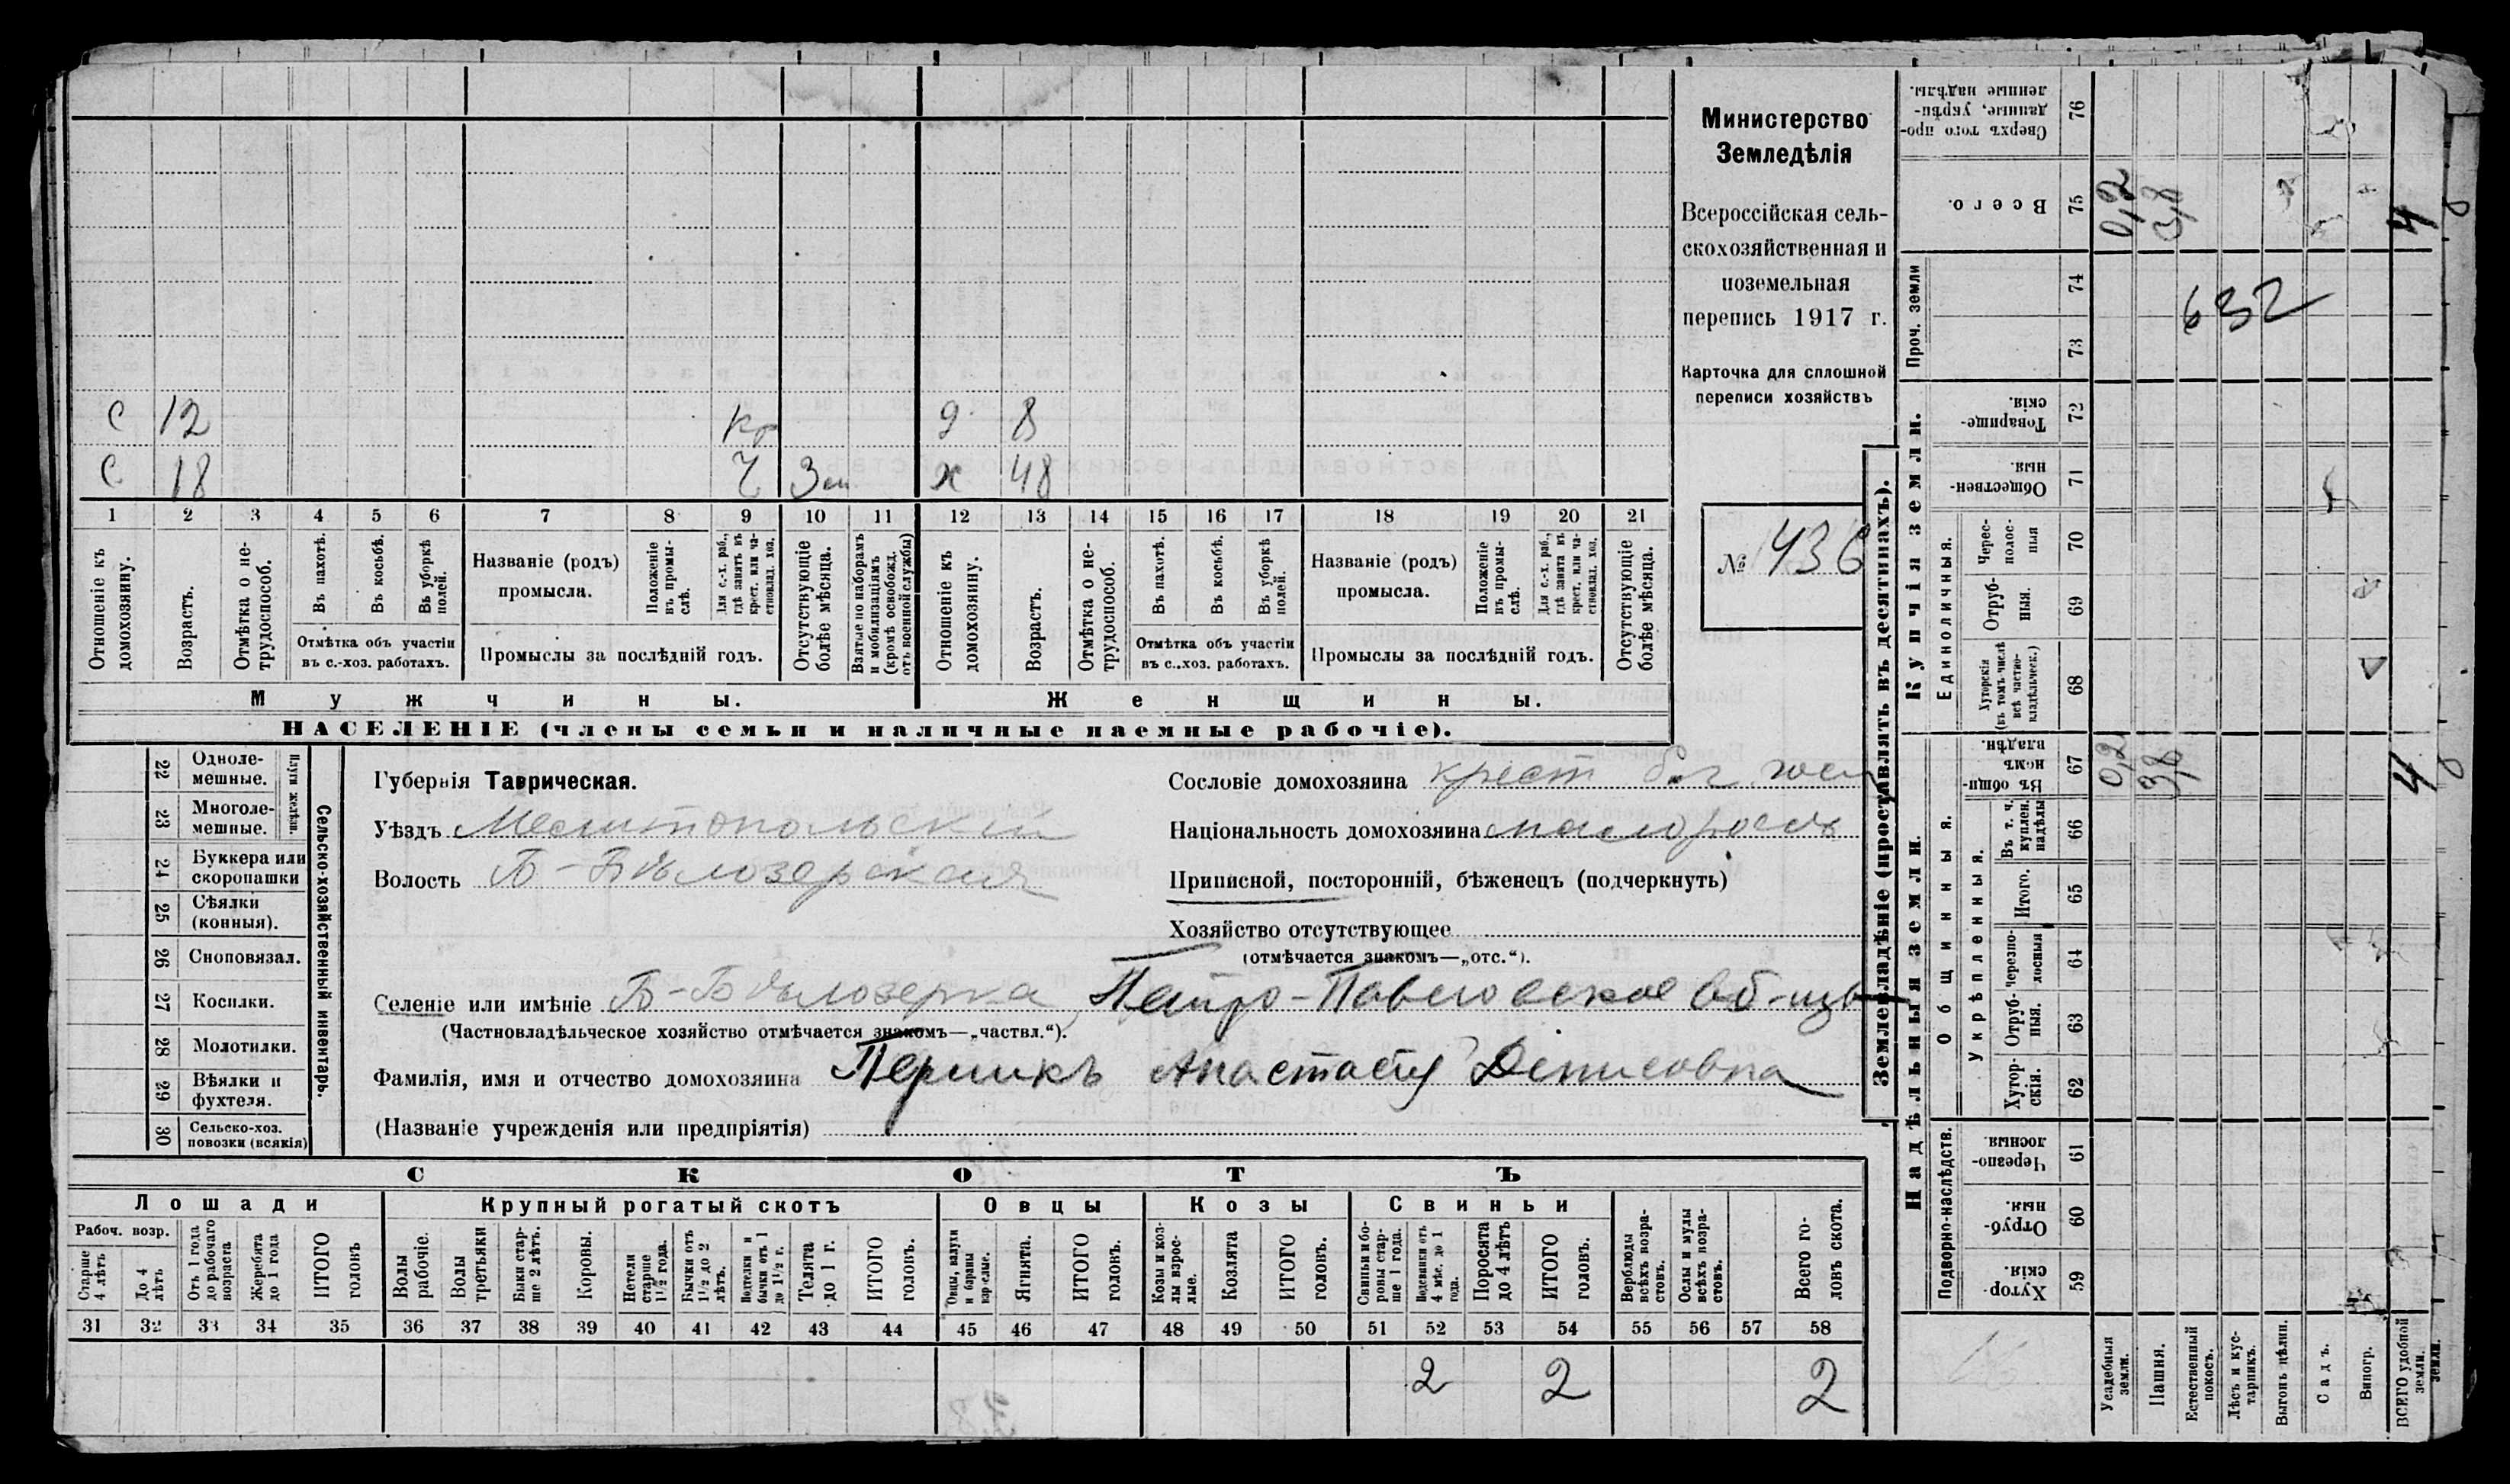 С 12 Кр д 8
С 18 Ч х 48
1 2 3 4 5 6 7 8 9 10 11 12 13 14 15 16 17 18 19 20 21
Отношеніе къ домохозяину.
Возрастъ.
Отмѣтка о не-
трудоспособ.
Въ пахотѣ.
Въ косьбѣ.
Въ уборкѣ полей.
Отмѣтка объ участіи
въ с.-хоз. работахъ.
Названіе (родъ)
промысла.
Положеніе въ промы-
слѣ.
Для с.-х. раб.,
гдѣ занятъ въ
крест. или ча-
стновлад. хоз.
Промыслы за послѣдній годъ.
Отсутствующіе
болѣе мѣсяца.
Взятые по наборамъ
и мобилизаціямъ
(кромѣ освобожд.
отъ военной службы)
Отношеніе къ домохозяину.
Возрастъ.
Отмѣтка о не-
трудоспособ.
Въ пахотѣ.
Въ косьбѣ.
Въ уборкѣ полей.
Отмѣтка объ участіи
въ с.-хоз. работахъ.
Названіе (родъ)
промысла.
Положеніе въ промы-
слѣ.
Для с.-х. раб.,
гдѣ занята въ
крест. или ча-
стновлад. хоз.
Промыслы за послѣдній годъ.
Отсутствующіе
болѣе мѣсяца.
Мужчины. Женщины.
НАСЕЛЕНІЕ (члены семьи и наличные наемные рабочіе).
Министерство
Земледѣлія
Всероссійская сель-
скохозяйственная и
поземельная
перепись 1917 г.
Карточка для сплошной
переписи хозяйствъ
№ 436
22 Одноле-
мешные.
23 Многоле-
мешные.
Плуги желѣзн.
24 Буккера или
скоропашки
25 Сѣялки
(конныя).
26 Сноповязал.
27 Косилки.
28 Молотилки.
29 Вѣялки и
фухтеля.
30 Сельско-хоз.
повозки (всякія)
Сельско-хозяйственный инвентарь.
Губернія Таврическая.
Уѣздъ Мелитопольскій
Волость Б-Бѣлозерская
Сословіе домохозяина крест
Національность домохозяина малороссъ
Приписной, посторонній, бѣженецъ (подчеркнуть)
Хозяйство отсутствующее
(отмѣчается знакомъ—„отс.“).
Селеніе или имѣніе Б-Бѣлозерка, Петро-Павловское об-щ
(Частновладѣльческое хозяйство отмѣчается знакомъ—„частвл.“).
Фамилія, имя и отчество домохозяина Анастасія Денисовна
(Названіе учрежденія или предпріятія)
СКОТЪ
Лошади Крупный рогатый скотъ Овцы Козы Свиньи
Рабоч. возр.
Старше 4 лѣтъ
До 4 лѣтъ
Отъ 1 года
до рабочаго
возраста
Жеребята
до 1 года
ИТОГО
головъ
Волы
рабочіе.
Волы
третьяки
Быки стар-
ше 2 лѣтъ.
Коровы.
Нетели
старше
1½ года.
Бычки отъ
1½ до 2
лѣтъ.
Подтелки и
бычки отъ 1
до 1½ г.
Телята
до 1 г.
ИТОГО
головъ.
Овцы, валухи
и бараны
взрослые.
Ягнята.
ИТОГО
головъ.
Козы и коз-
лы взрос-
лые.
Козлята
ИТОГО
головъ.
Свиньи и бо-
ровы стар-
ше 1 года.
Подсвинки отъ
4 мѣс. до 1
года.
Поросята
до 4 лѣтъ
ИТОГО
головъ.
Верблюды
всѣхъ возра-
стовъ.
Ослы и мулы
всѣхъ возра-
стовъ.
Всего го-
ловъ скота.
31 32 33 34 35 36 37 38 39 40 41 42 43 44 45 46 47 48 49 50 51 52 53 54 55 56 57 58
2 2 2
Землевладѣніе (проставлять въ десятинахъ).
Надѣльныя земли. Купчія земли. Проч. земли
Подворно-наслѣдств.
Общинныя.
Укрѣпленныя.
Единоличныя.
Хутор-
скія. 59
Отруб-
ныя. 60
Черезпо-
лосныя. 61
Хутор-
скія. 62
Отруб-
ныя. 63
Черезпо-
лосныя 64
Итого. 65
Въ т. ч.
куплен.
надѣлы 66
Въ общи-
номъ
владѣн. 67
Хуторскія
(въ томъ числѣ
всѣ частно-
владѣльческ.) 68
Отруб-
ныя. 69
Черес-
полос-
ныя 70
Обществен-
ныя. 71
Товарище-
скія. 72
73
74
Всего. 75
Сверхъ того про-
данные, укрѣп-
ленные надѣлы. 76
Усадебныя
земли.
Пашня.
Естественный
покосъ.
Лѣсъ и кус-
тарникъ.
Выгонъ цѣлин.
Садъ.
Виногр.
ВСЕГО удобной
земли.
0,2 3,8 4
0,2 3,8 4
632